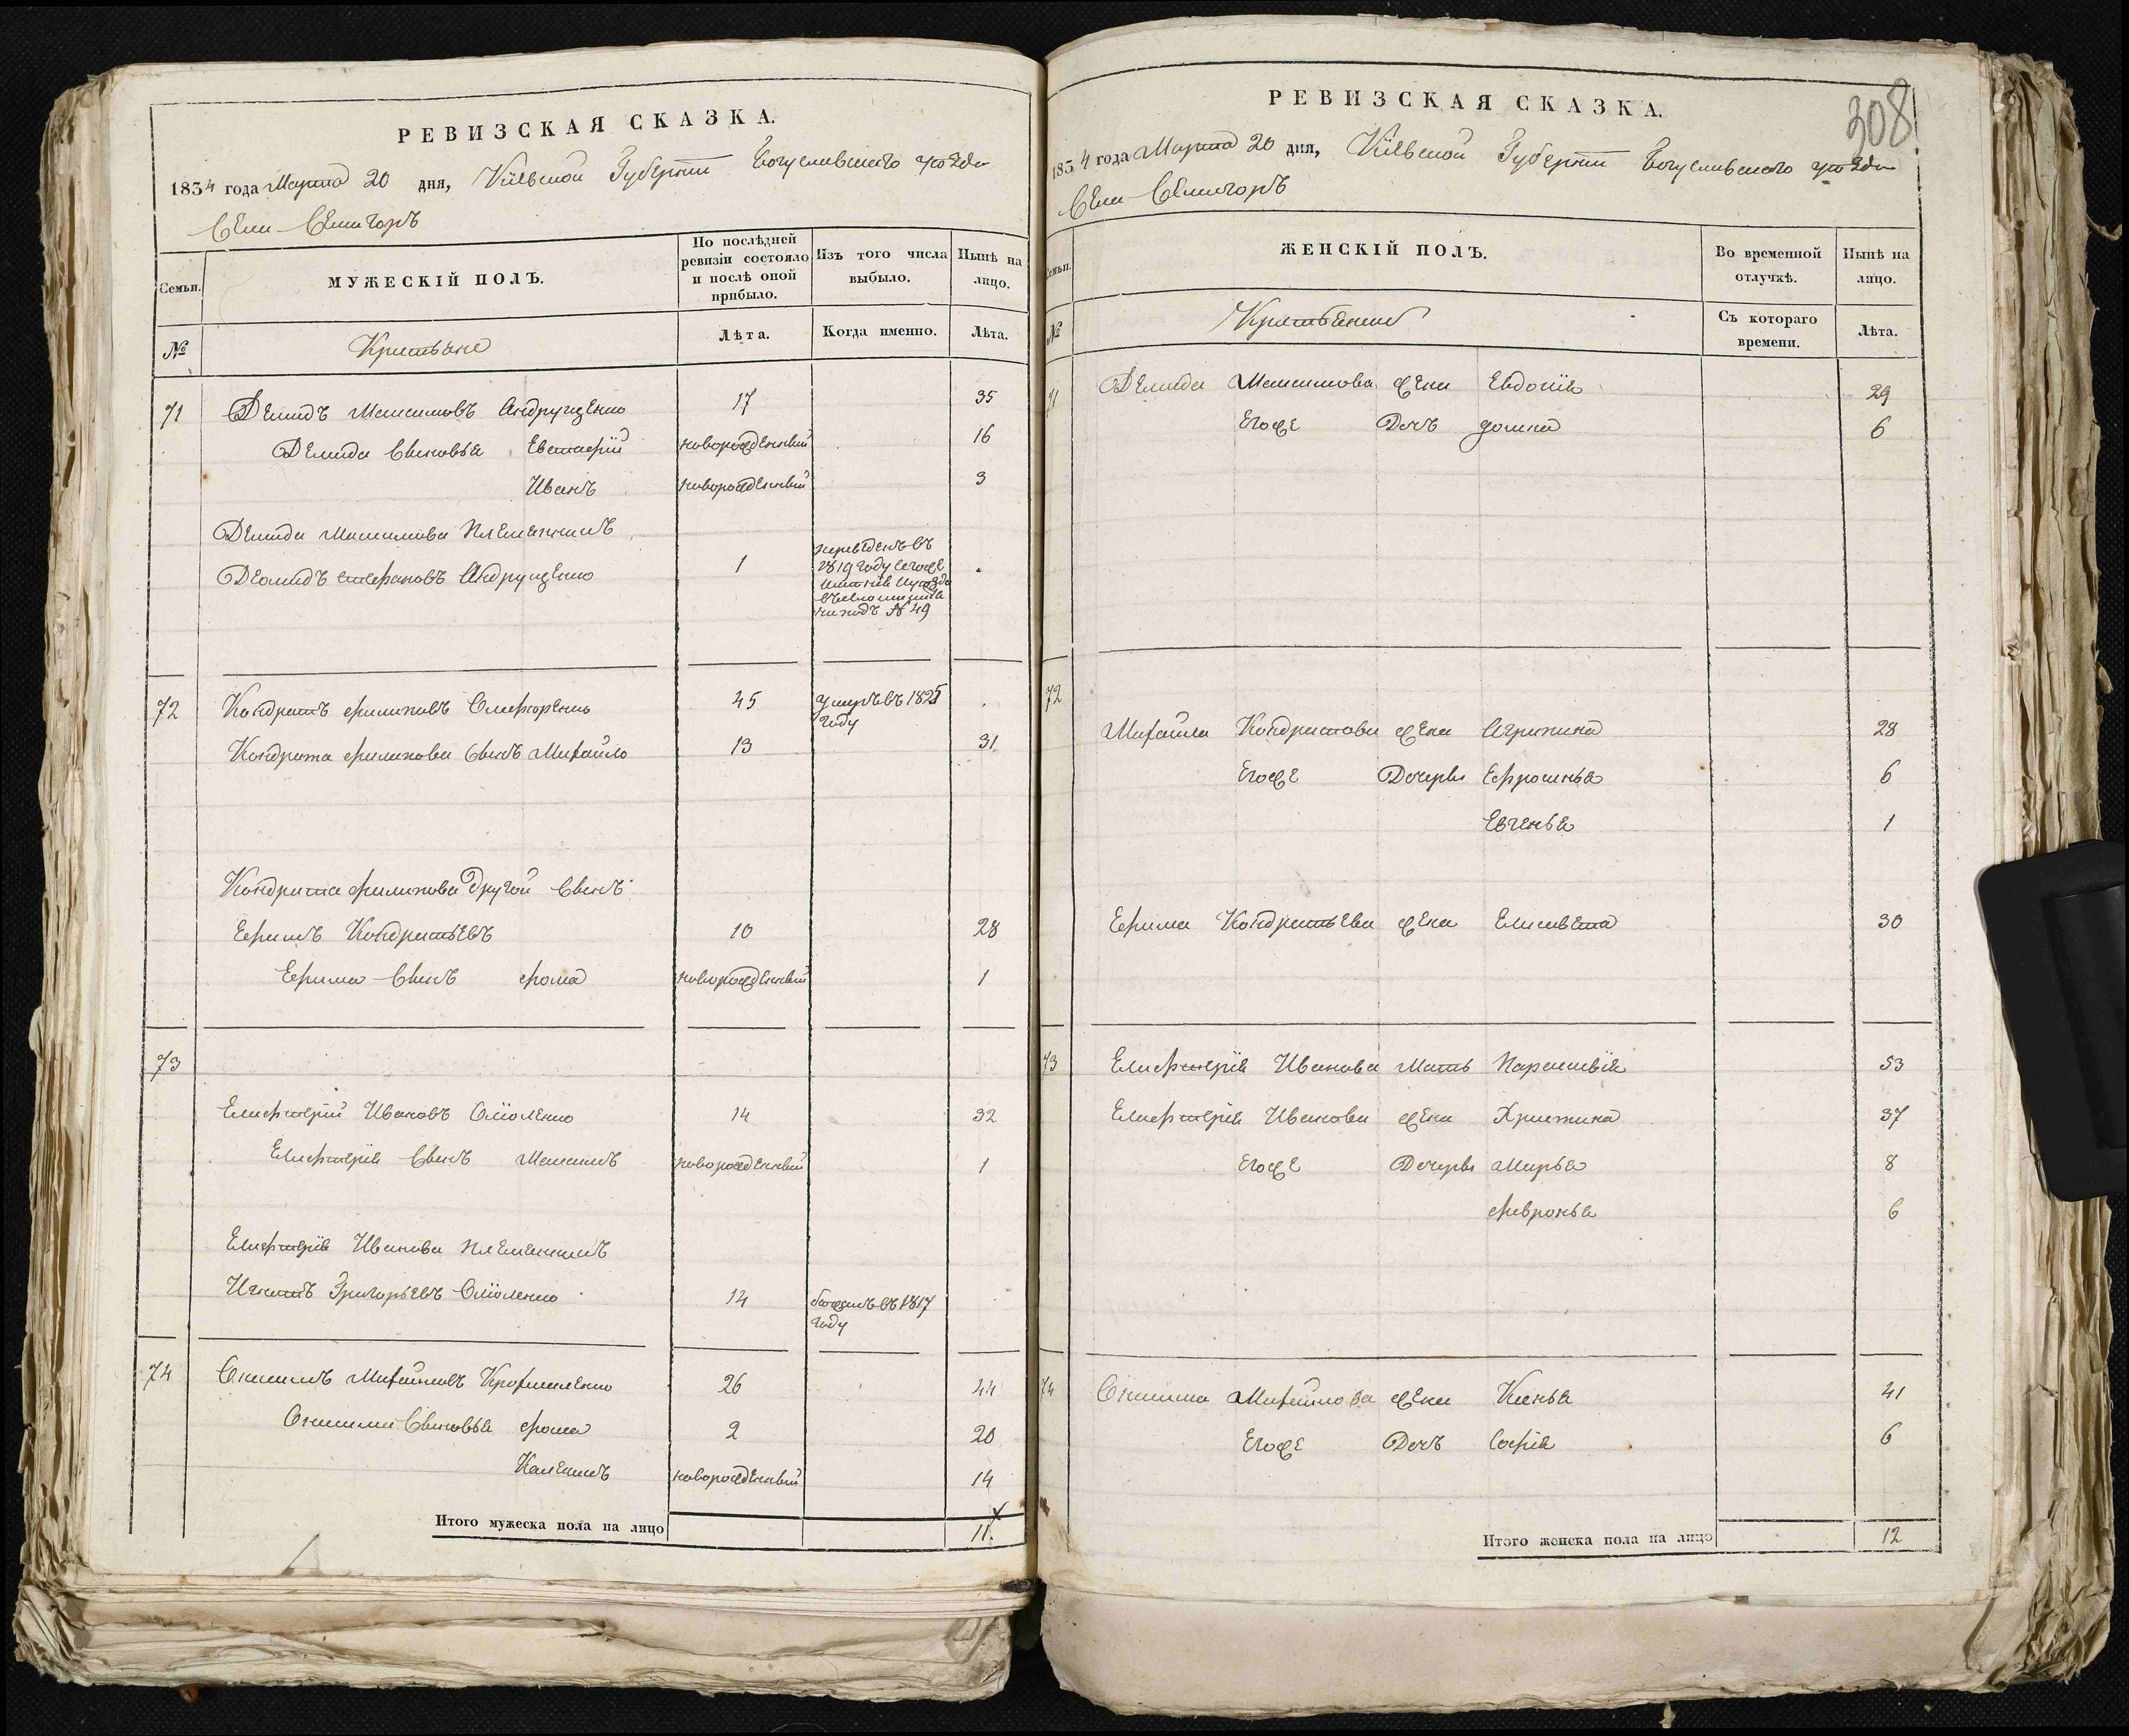 РЕВИЗСКАЯ СКАЗКА.
1834 года Марта 20 дня, Кіевской Губерніи Богуславского уѣзда
Села Селигоръ
Семьи.
МУЖЕСКІЙ ПОЛЪ.
По послѣдней ревизіи состояло и послѣ оной прибыло.
Изъ того числа выбыло.
Нынѣ на лицо.
№
Крестьяне
Лѣта.
Когда именно.
Лѣта.
71 Демидъ Максимовъ Андрущенко 17 35
Демида Сыновья Евстафій новорожденный 16
Иванъ новорожденный 3
Демида Максимова племянникъ
Деомидъ Стефановъ Андрущенко 1 переведенъ въ
1819 году
№ 49
72 Кондратъ Филиповъ 45 умеръ въ 1825
году
Кондрата Филипова Сынъ Михайло 13 31
Кондрата Филипова другой Сынъ
Ефимъ Кондратьевъ 10 28
Ефима Сынъ Фома новорожденный 1
73
Елефтерій Ивановъ 14 32
Елефтерія Сынъ Максимъ новорожденный 1
Елефтерія Иванова племянникъ
Игнатъ Григорьевъ 14 бѣжалъ въ 1817
году
74 Онисимъ Михайловъ 26 44
Онисима Сыновья Фома 2 20
новорожденный 14
Итого мужеска пола на лицо 11.
308
РЕВИЗСКАЯ СКАЗКА.
1834 года Марта 20 дня, Кіевской Губерніи Богуславского уѣзда
Села Селигоръ
Семьи.
ЖЕНСКІЙ ПОЛЪ.
Во временной отлучкѣ.
Нынѣ на лицо.
№
Крестьяне
Съ котораго времени.
Лѣта.
71 Демида Максимова жена Евдокія 29
Егоже Дочь 6
72
Михайла Кондратова жена Агрипина 28
Егоже Дочери Ефросинья 6
Евгенья 1
Ефима Кондратьева жена Елисавета 30
73 Елефтерія Иванова Мать Параскевія 53
Елефтерія Иванова жена Христина 37
Егоже Дочери Марья 8
Февронья 6
74 Онисима Михайлова жена Ксенья 41
Егоже Дочь Софія 6
Итого женска пола на лицо 12